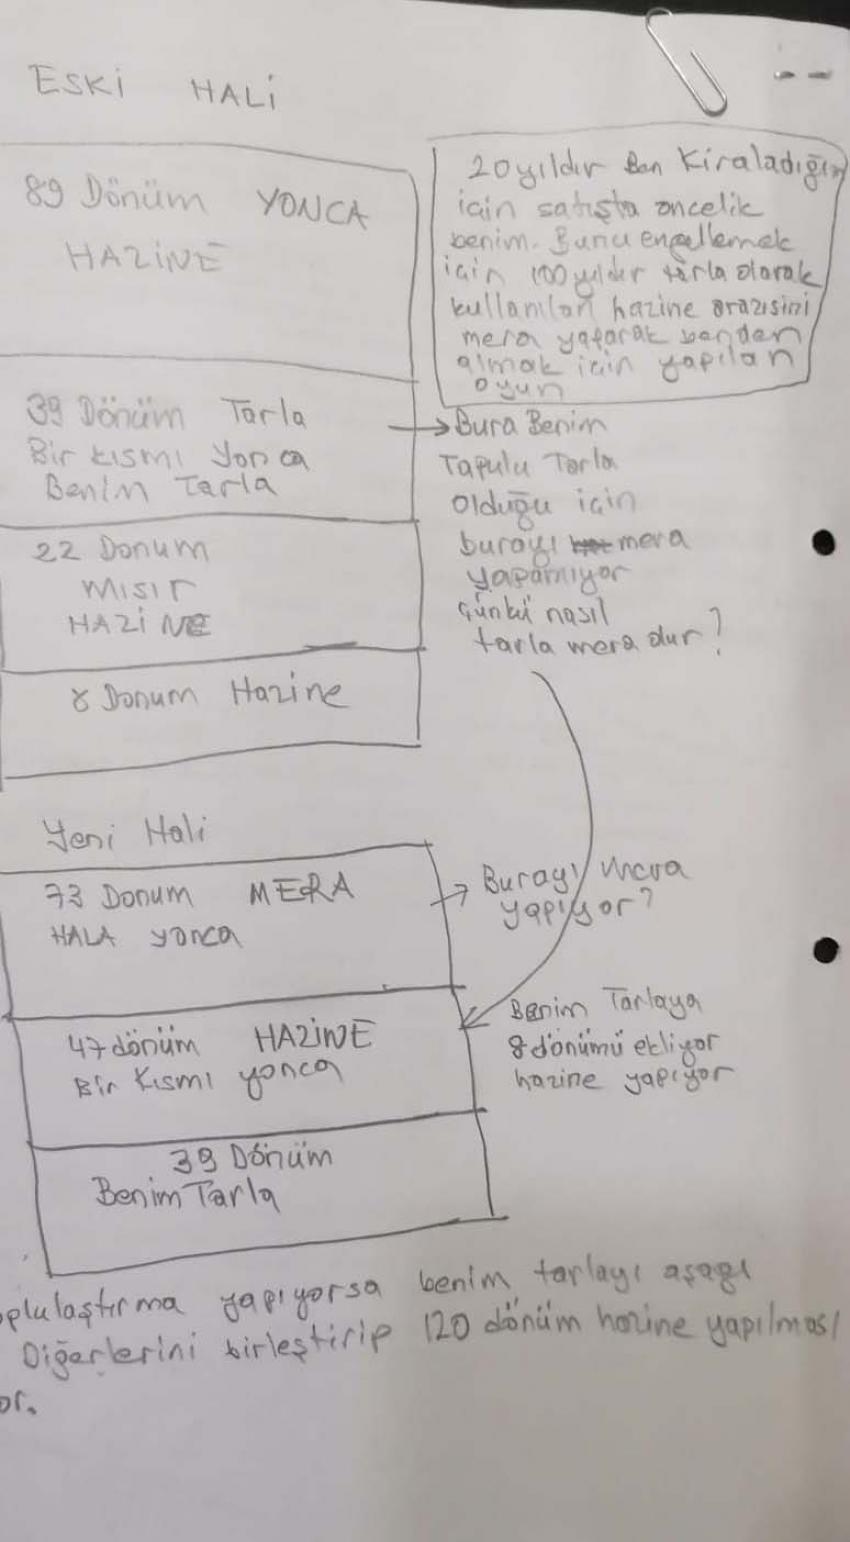 ESKİ HALİ
89 Dönüm YONCA
HAZİNE
20 yıldır Ben Kiraladığım
için satışta öncelik
benim. Bunu engellemek
için 100 yıldır tarla olarak
kullanılan hazine arazisini
mera yaparak benden
almak için yapılan
oyun
39 Dönüm Tarla
Bir kısmı Yonca
Benim Tarla
→ Bura Benim
Tapulu Tarla
Olduğu için
burayı mera
yapamıyor
Çünkü nasıl
tarla mera dur?
22 Donum
MISIR
HAZİNE
8 Donum Hazine
Yeni Hali
73 Donum MERA
HALA yonca
→ Burayı mera
yapıyor?
47 dönüm HAZİNE
Bir Kısmı yonca
Benim Tarlaya
8 dönümü ekliyor
hazine yapıyor
39 Dönüm
Benim Tarla
oplulaştırma yapıyorsa benim tarlayı aşağı
Diğerlerini birleştirip 120 dönüm hazine yapılması
or.